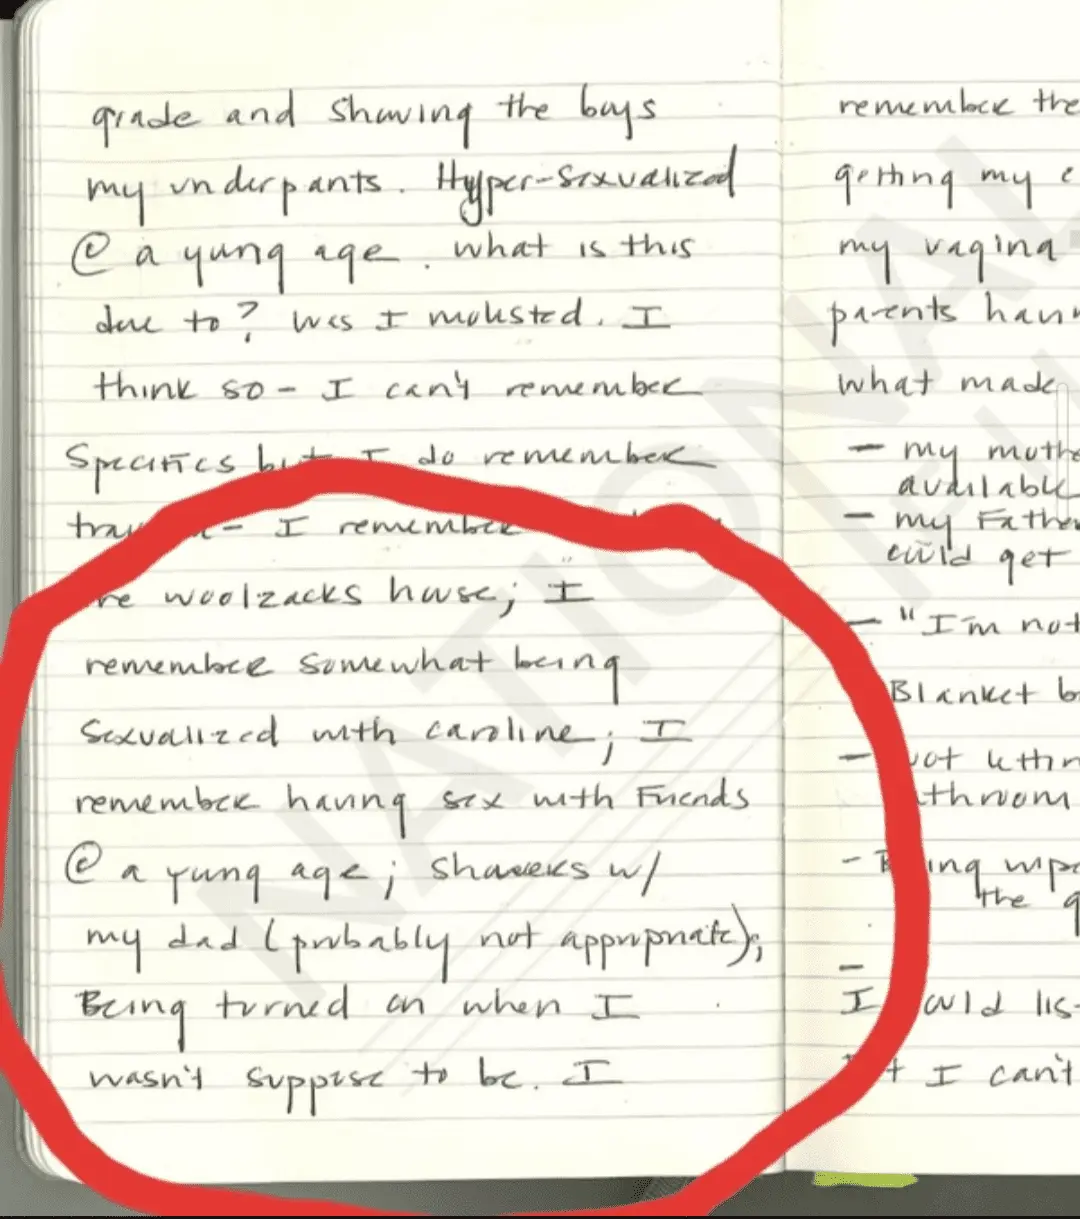 grade and showing the boys
my underpants. Hyper-sexualized
@ a yung age. what is this
due to? Was I molested. I
think so - I can't remember
Specifics but I do remember
trauma - I remember
woolzacks house; I
remember somewhat being
Sexualized with caroline; I
remember having sex with Friends
@ a yung age; showers w/
my dad (probably not appropriate);
Being turned on when I
wasn't suppose to be. I
remember the
getting my
my vagina
parents
what made
- my
available
- my Father
could get
- "I'm not
Blanket
- not
- 
the
I list
I can't
NATIONAL